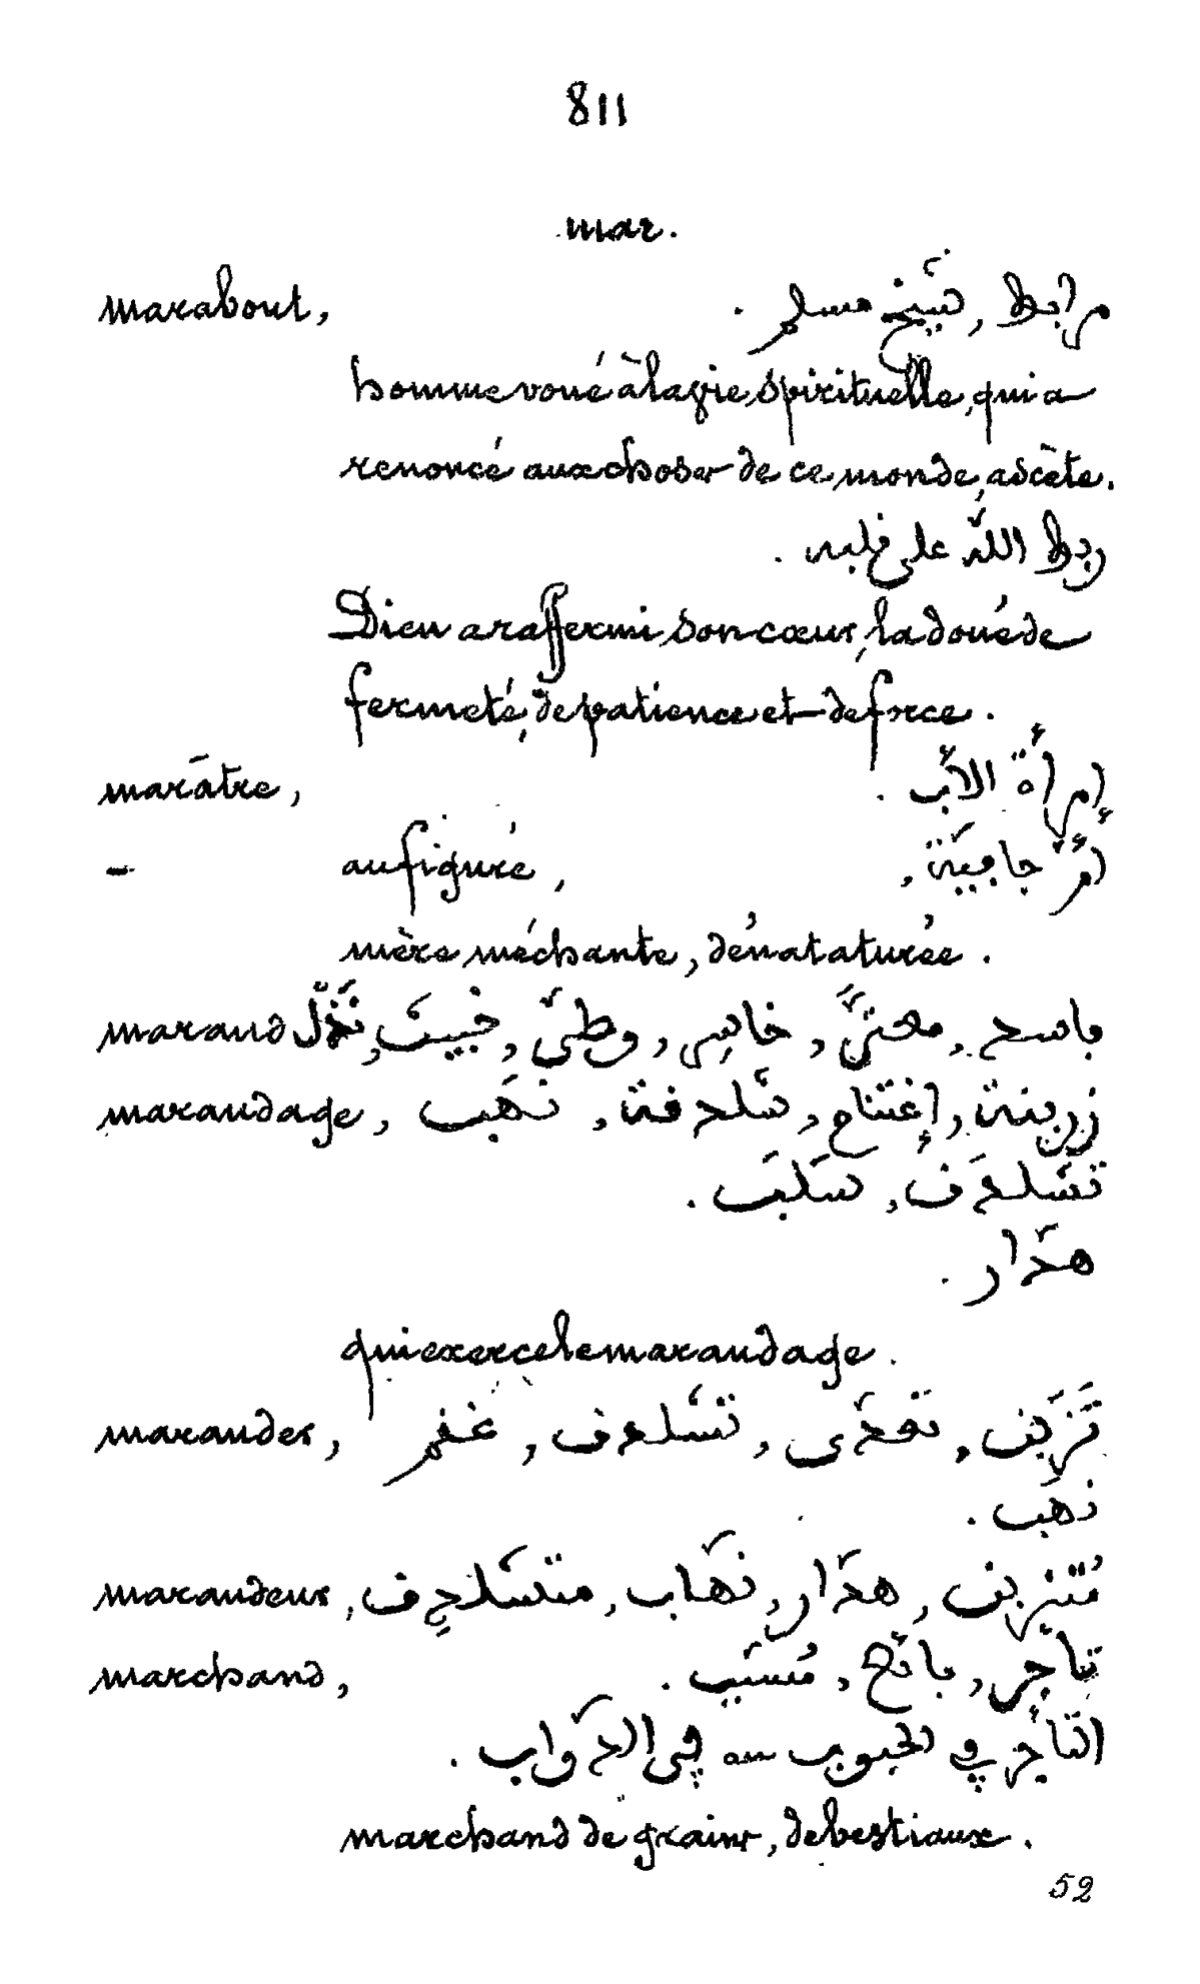 811
mar.
marabout, مرابط, شيخ مسلم.
homme voué à la vie spirituelle, qui a
renoncé aux choses de ce monde, ascète.
ربط اللّه على قلبه.
Dieu a raffermi son cœur, l'a doué de
fermeté, de patience et de force.
marâtre, إمرأة الأب.
- au figuré, أمّ جافية,
mère méchante, dénataturée.
maraud خاسِى, وطىّ, خبيث, نَذْل
maraudage, زربنة, إغتناح, شلدفة, نهَب,
تشلدَف, سَلَب.
هدّار.
qui exerce le maraudage.
marauder, تَزَربَن, تعدّى, تشلدف,
نهَب.
maraudeur, مُتزربن, هدّار, نهّاب, متشلدِف
marchand, تاجر, بائع, مُسبّب.
التاجر في الحبوب ou في الدّواب.
marchand de grains, de bestiaux.
52